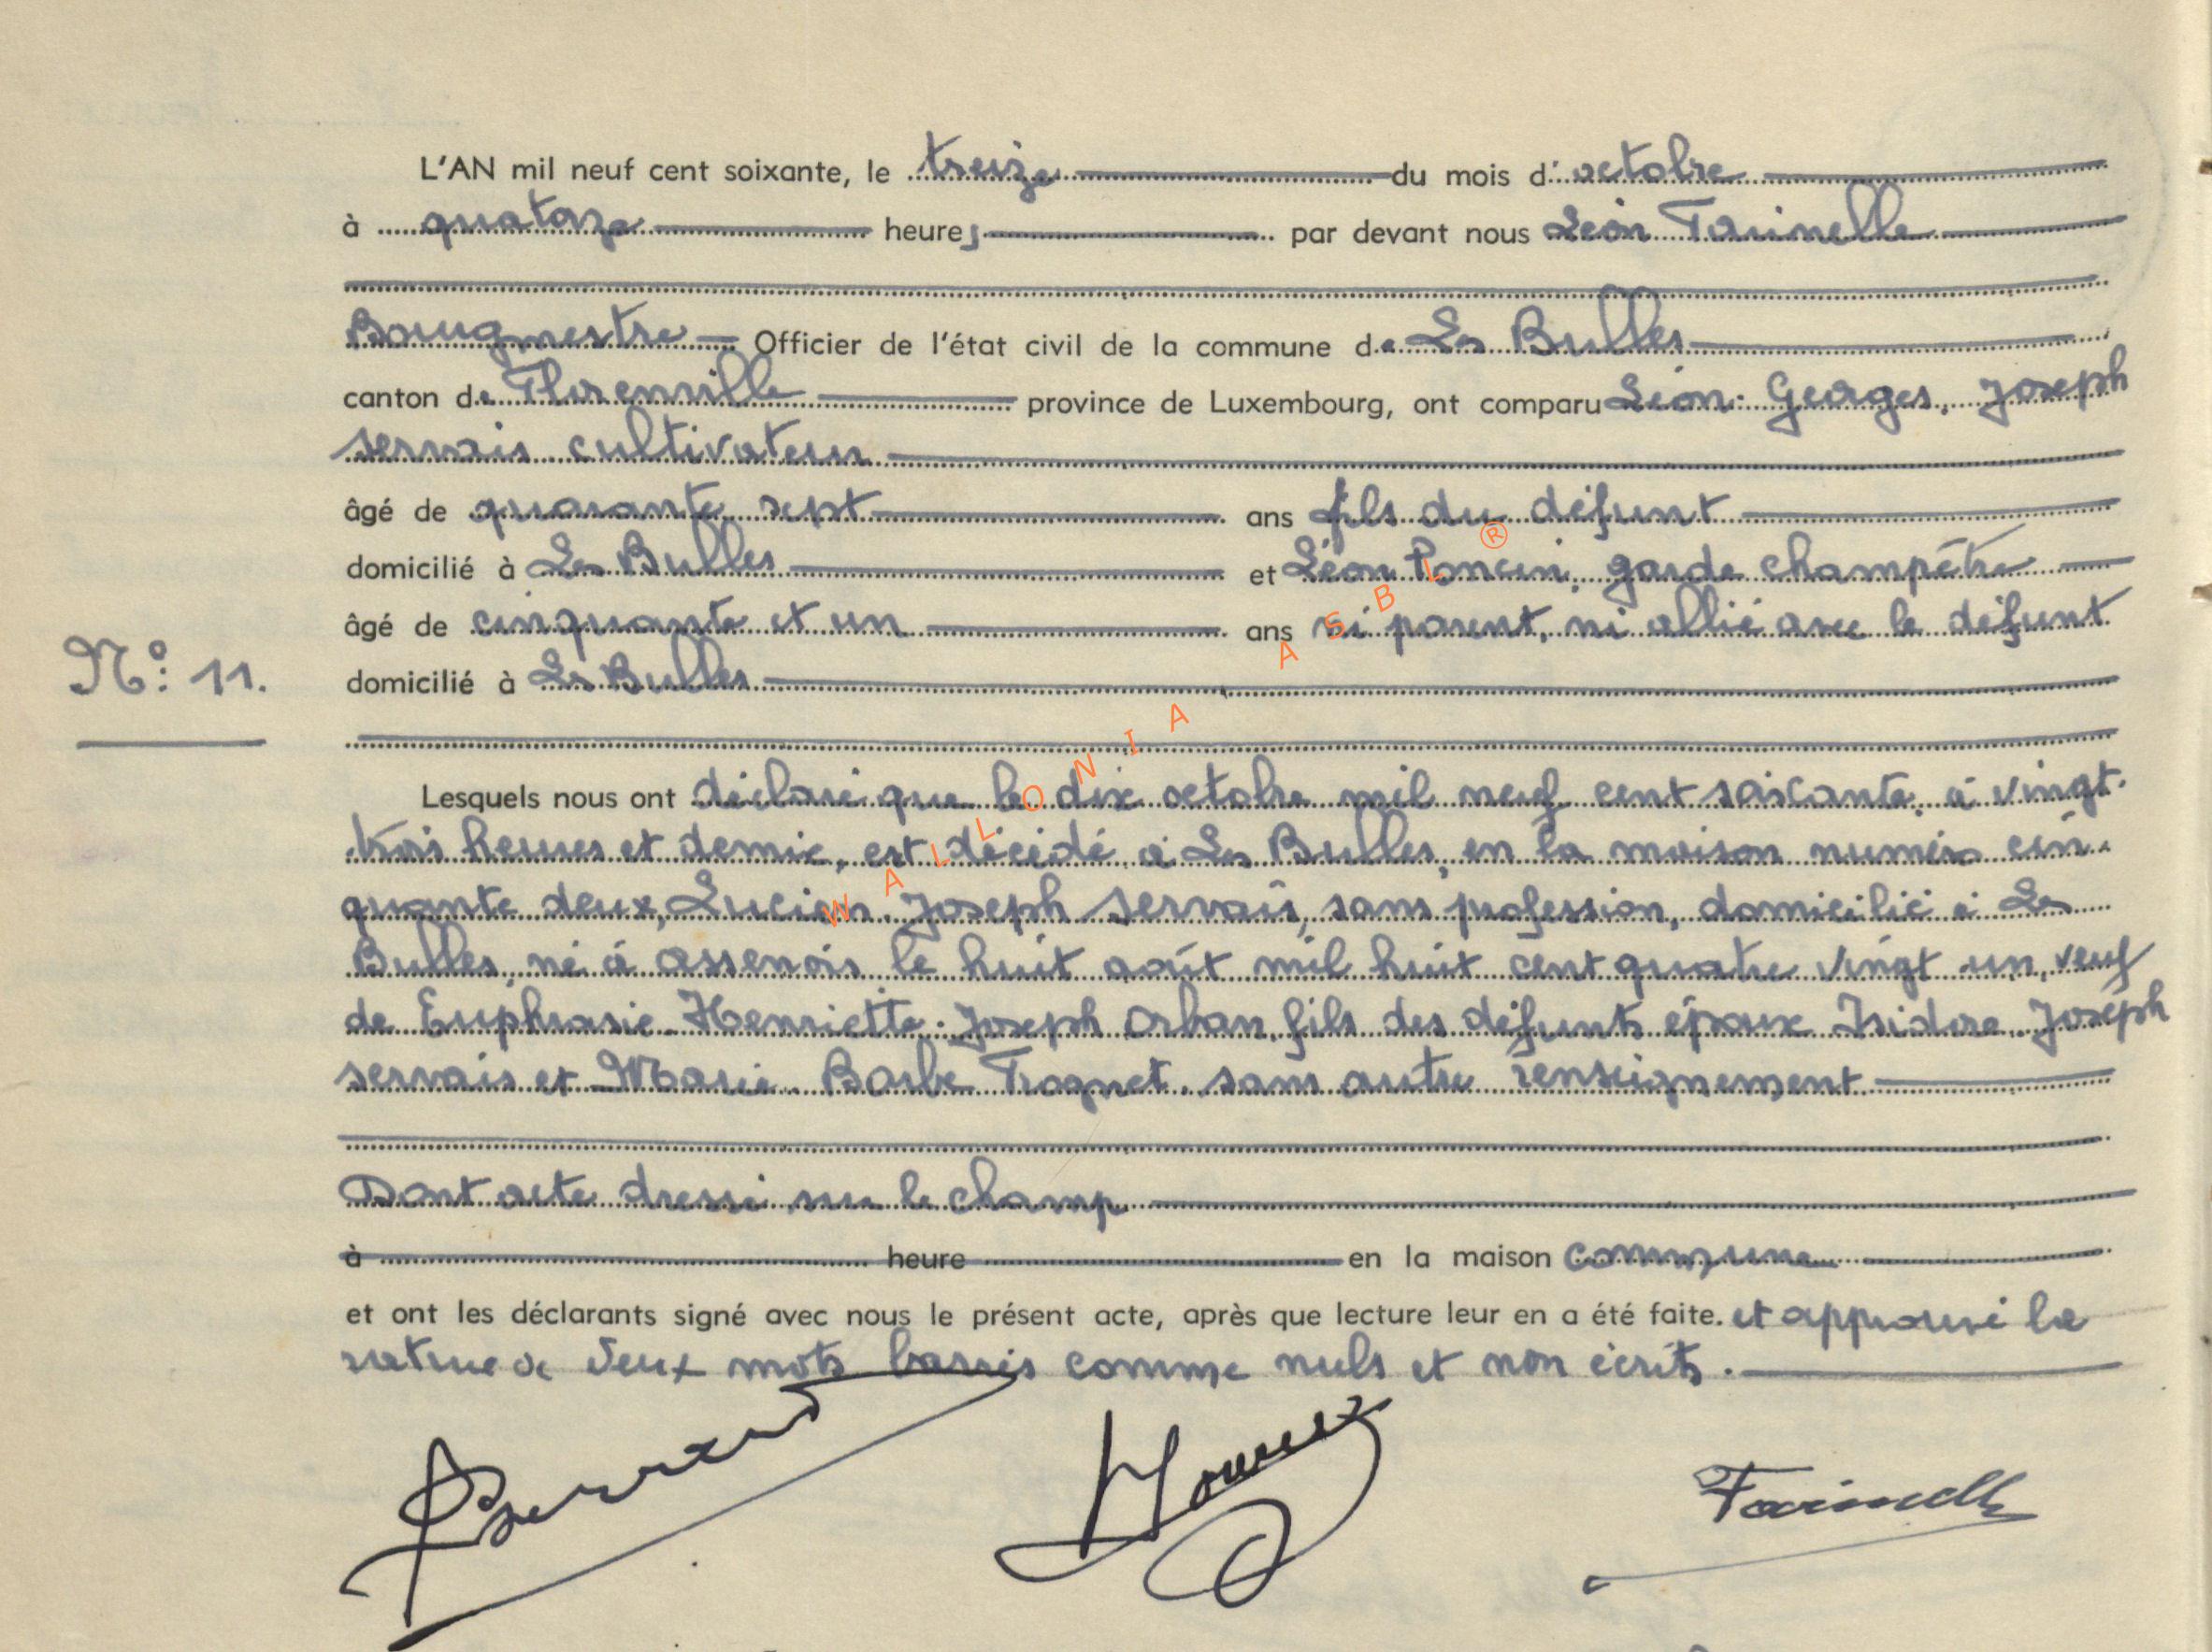 L'AN mil neuf cent soixante, le treize du mois d' octobre
à quatorze heures par devant nous Léon Farinelle
Bourgmestre Officier de l'état civil de la commune de Les Bulles
canton de Florenville province de Luxembourg, ont comparu Léon. Georges. Joseph
Servais cultivateur
âgé de quarante sept ans fils du défunt
domicilié à Les Bulles et Léon Poncin, garde champêtre
âgé de cinquante et un ans ni parent, ni allié avec le défunt
N°: 11. domicilié à Les Bulles
Lesquels nous ont déclaré que le dix octobre mil neuf cent soixante, à vingt.
trois heures et demie, est décédé à Les Bulles, en la maison numéro cin-
quante deux, Lucien. Joseph Servais, sans profession, domicilié à Les
Bulles, né à Assenois le huit août mil huit cent quatre vingt un, veuf
de Euphrasie. Henriette. Joseph Orban, fils des défunts époux Isidore. Joseph
Servais et Marie. Barbe Trognet. sans autre renseignement
Dont acte dressé sur le champ
à heure en la maison commune
et ont les déclarants signé avec nous le présent acte, après que lecture leur en a été faite. et approuvé la
rature de deux mots barrés comme nuls et non écrits.
Farinelle
WALLONIA ASBL ®